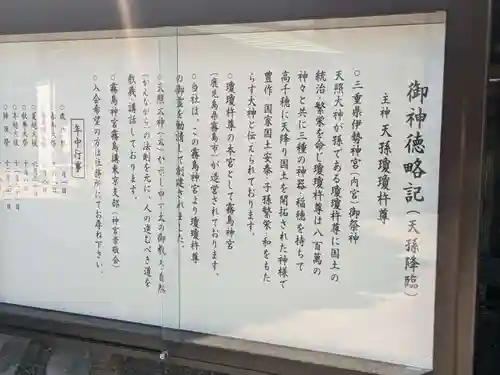 御神徳略記(天孫降臨)
主神 天孫瓊瓊杵尊
○三重県伊勢神宮(内宮)御祭神
天照大神が孫である瓊瓊杵尊に国土の
統治、繁栄を命じ瓊瓊杵尊は八百萬の
神々と共に三種の神器、稲穂を持ちて
高千穂に天降り国土を開拓された神様で
豊作、国家国土安泰、子孫繁栄、和をもた
らす大神と伝えられております。
○瓊瓊杵尊の本宮として霧島神宮
(鹿児島県霧島市)が造営されております。
○当社は、この霧島神宮より瓊瓊杵尊
の御霊を勧請して創建されました。
○天照大神
の御教え、自然
の法則を元に、人の進むべき道を
教義、講話しております。
○霧島神宮霧島講東京支部(神宮崇敬会)
○入会希望の方は社務所にてお尋ね下さい。
年中行事